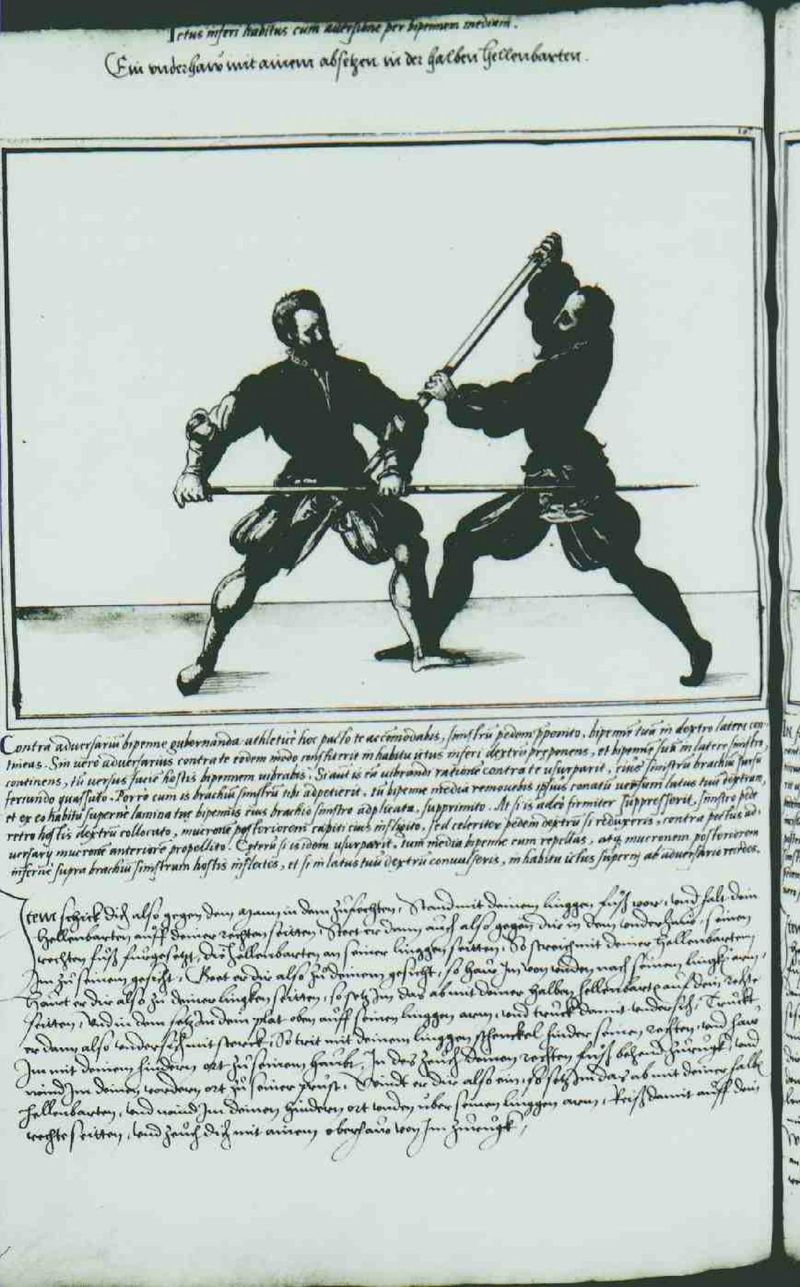 Ictus inferi habitus cum auersione per bipennem mediam.
Ein vnderhaw mit ainem absetzen in der halben Hellenbarten.
Contra aduersariũ bipenne gubernanda athleticè hoc pacto te accõmodabis, sinistrũ pedem ꝓponito, bipennẽ tuã in dextro latere con-
tineas. Sin verò aduersarius contra te eodem modo constiterit in habitu ictus inferi dextrũ preponens, et bipennẽ suã in latere sinistro
continens, tũ versus faciẽ hostis bipennem vibrabis. Si aũt is eã vibrandi rationẽ contra te vsurparit, eius sinistrũ brachiũ
feriundo quassato. Porrò cum is brachiũ sinistrũ tibi adpetierit, tũ bipenne media remouebis ipsius conatũ versum latus tuũ dextrum,
et ex eo habitu supernè lamina tuẽ bipennis eius brachio sinistro adplicata, supprimito. At si is adeò firmiter suppresserit, sinistro pede
retro hostis dextrũ collocato, mucronẽ posteriorem capiti eius infligito, sed celeriter pedem dextrũ si reduxeris, contra pectus ad-
uersarij mucronẽ anteriorẽ propellito. Cęterũ si is idem vsurparit, tum media bipenne eum repellas, atq; mucronem posteriorem
infernè supra brachiũ sinistrum hostis inflectes, et si in latus tuũ dextrũ conuulseris, in habitu ictus superni ab aduersario recedes.
Item schick dich also gegen dem mann in dem zůfechten, Stand mit deinem linggen fůß vor, vnd halt dein
Hellenbarten auff deiner rechten seitten, Steet er dann auch also gegen dir in dem vnderhaw, seinen
rechten fůß fürgesetzt, die Hellenbarten an seiner linggen seitten, So streich mit deiner Hellenbarten
Im zů seinem gesicht, Geet er dir also zů deinem gesicht, so haw Im von vnden nach seinem linggen arm,
Hawt er dir also zů deiner linggen seitten, so setz Im das ab mit deiner halben Hellenbarten auf dein rechte
seitten, vnd in dem setz Im dein plat oben auff seinen linggen arm, vnd truck damit vndersich, Truckt
er dann also vndersich mit sterck, So trit mit deinem linggen schenckel hinder seinen rechten, vnd haw
Im mit deinem hindern ort zů seinem haubt, In des zeuch deinen rechten fůß behend zurugk, vnd
wind Im deinen vordern ort zů seiner prust, Windt er dir also ein, so setz Im das ab mit deiner halben
Hellenbarten, vnd wind Im deinen hindern ort vnden über seinen linggen arm, Reiß damit auff dein
rechte seitten, vnd zeuch dich mit ainem oberhaw von Im zurugk,